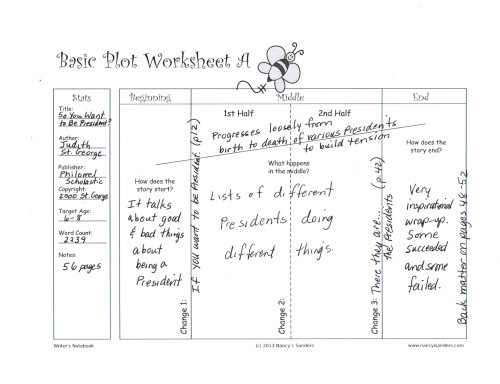 Basic Plot Worksheet A
Stats
Title:
So You Want
to Be President?
Author:
Judith
St. George
Publisher:
Philomel
Scholastic
Copyright:
2000 St. George
Target Age:
6-8
Word Count:
2239
Notes:
56 pages
Beginning
How does the
story start?
It talks
about good
& bad things
about
being a
President
Change 1:
If you want to be President. (p12)
Middle
1st Half
2nd Half
Progresses loosely from
birth to death of various Presidents
to build tension
What happens
in the middle?
Lists of different
Presidents doing
different things.
Change 2:
Change 3:
There they are.
the Presidents (p.42)
End
How does the
story end?
Very
inspirational
wrap-up.
Some
succeeded
and some
failed.
Back matter on pages 48-52
Writer's Notebook
(c) 2013 Nancy I. Sanders
www.nancyisanders.com